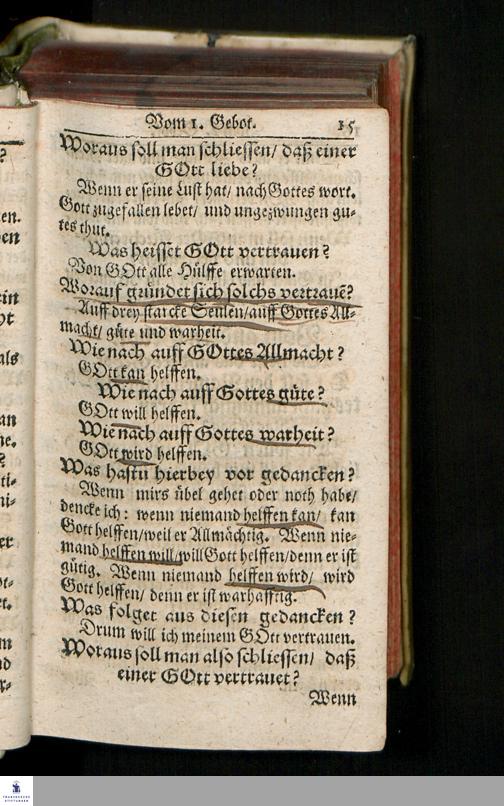 Vom 1. Gebot. 15
Woraus soll man schliessen/ daß einer
GOtt liebe?
Wenn er seine Lust hat/ nach Gottes wort.
Gott zugefallen lebet/ und ungezwungen gu-
tes thut.
Was heisset GOtt vertrauen?
Von GOtt alle Hülffe erwarten.
Worauf gründet sich solchs vertrauē?
Auff drey starcke Seulen/auff Gottes All-
macht/ güte und warheit.
Wie nach auff GOttes Allmacht?
GOtt kan helffen.
Wie nach auff Gottes güte?
GOtt will helffen.
Wie nach auff Gottes warheit?
GOtt wird helffen.
Was hastu hierbey vor gedancken?
Wenn mirs übel gehet oder noth habe/
dencke ich: wenn niemand helffen kan/ kan
Gott helffen/weil er Allmächtig. Wenn nie-
mand helffen will/will Gott helffen/denn er ist
gütig. Wenn niemand helffen wird/ wird
Gott helffen/ denn er ist warhafftig.
Was folget aus diesen gedancken?
Drum will ich meinem GOtt vertrauen.
Woraus soll man also schliessen/ daß
einer GOtt vertrauet?
Wenn
FRANCKESCHE
STIFTUNGEN